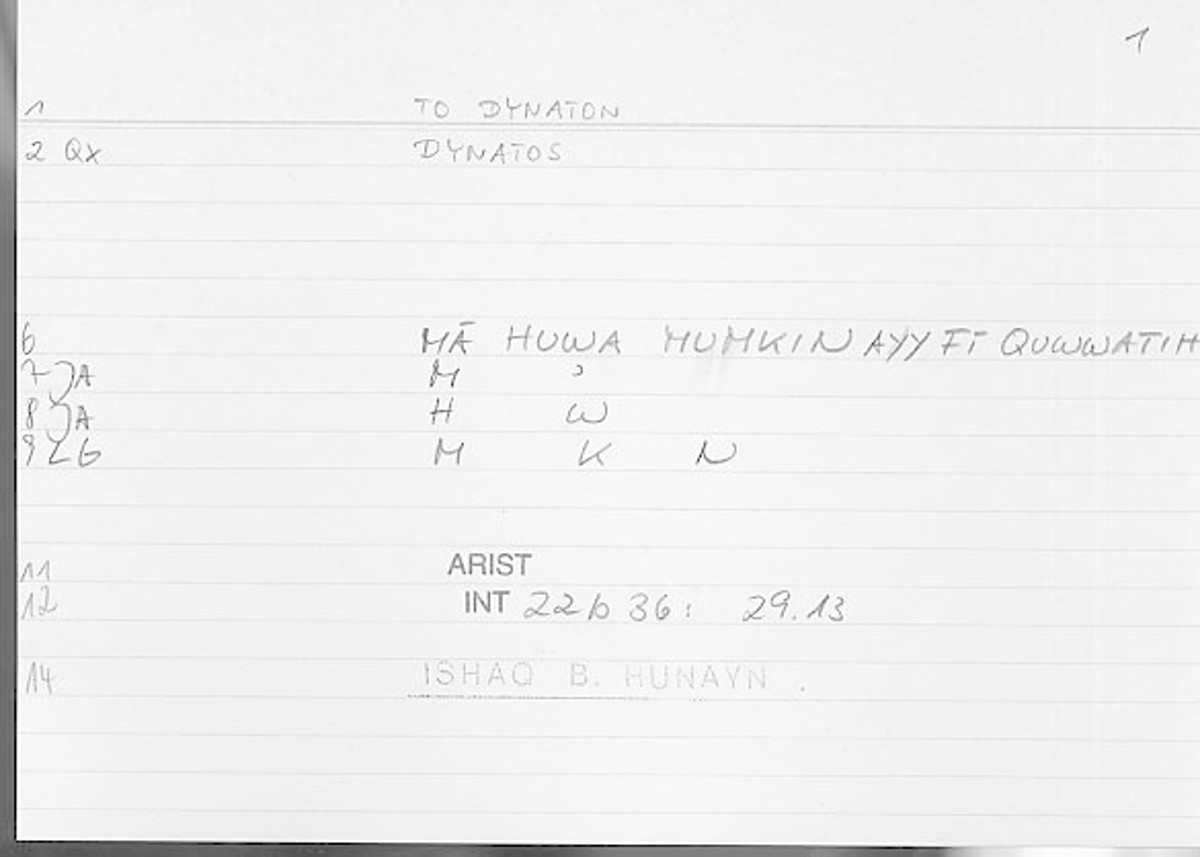 1
1 TO DYNATON
2 QX DYNATOS
6 MĀ HUWA MUMKIN AYY FĪ QUWWATIH
7 JA M ʾ
8 JA H W
9 LG M K N
11 ARIST
12 INT 22b 36: 29.13
14 ISHAQ B. HUNAYN.